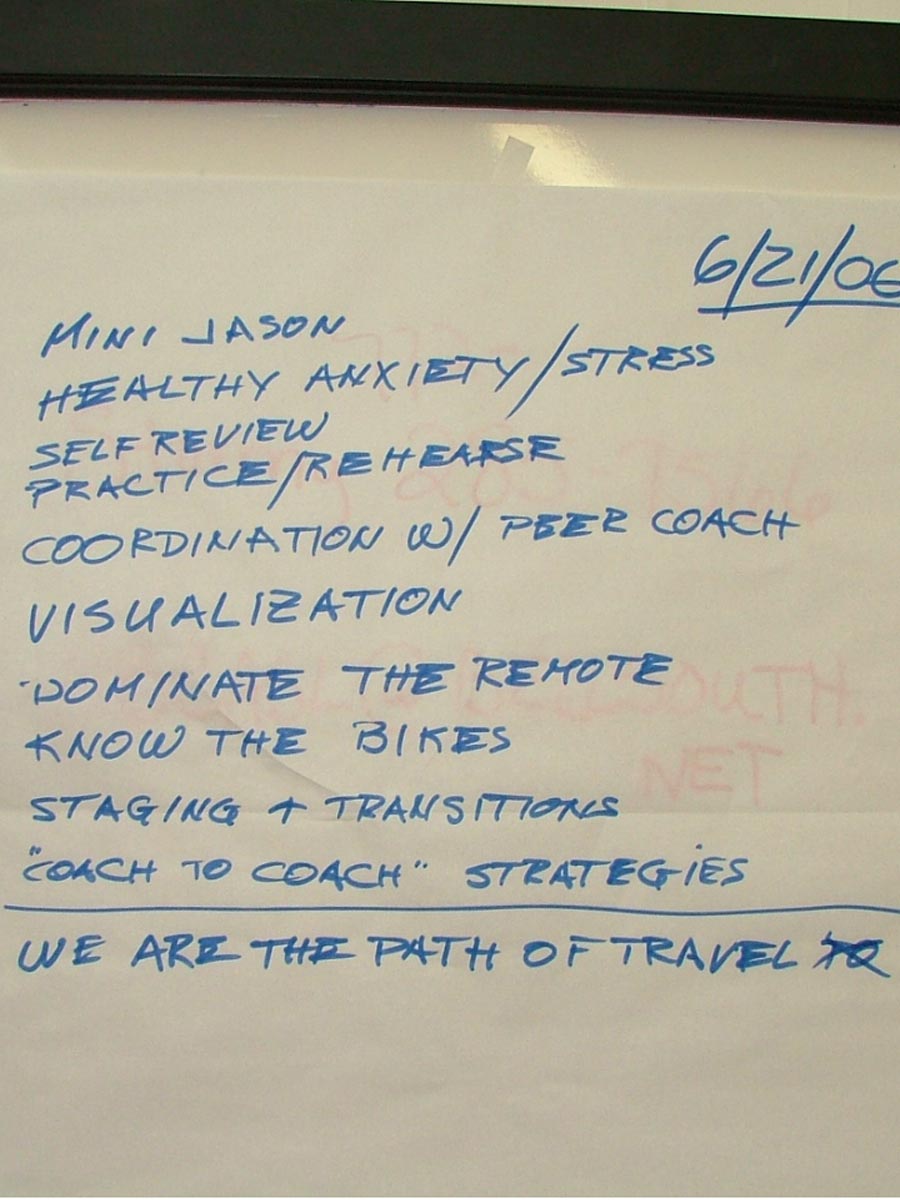 6/21/06
MINI JASON
HEALTHY ANXIETY/STRESS
SELF REVIEW
PRACTICE/REHEARSE
COORDINATION W/ PEER COACH
VISUALIZATION
DOMINATE THE REMOTE
KNOW THE BIKES
STAGING + TRANSITIONS
"COACH TO COACH" STRATEGIES
WE ARE THE PATH OF TRAVEL
NET